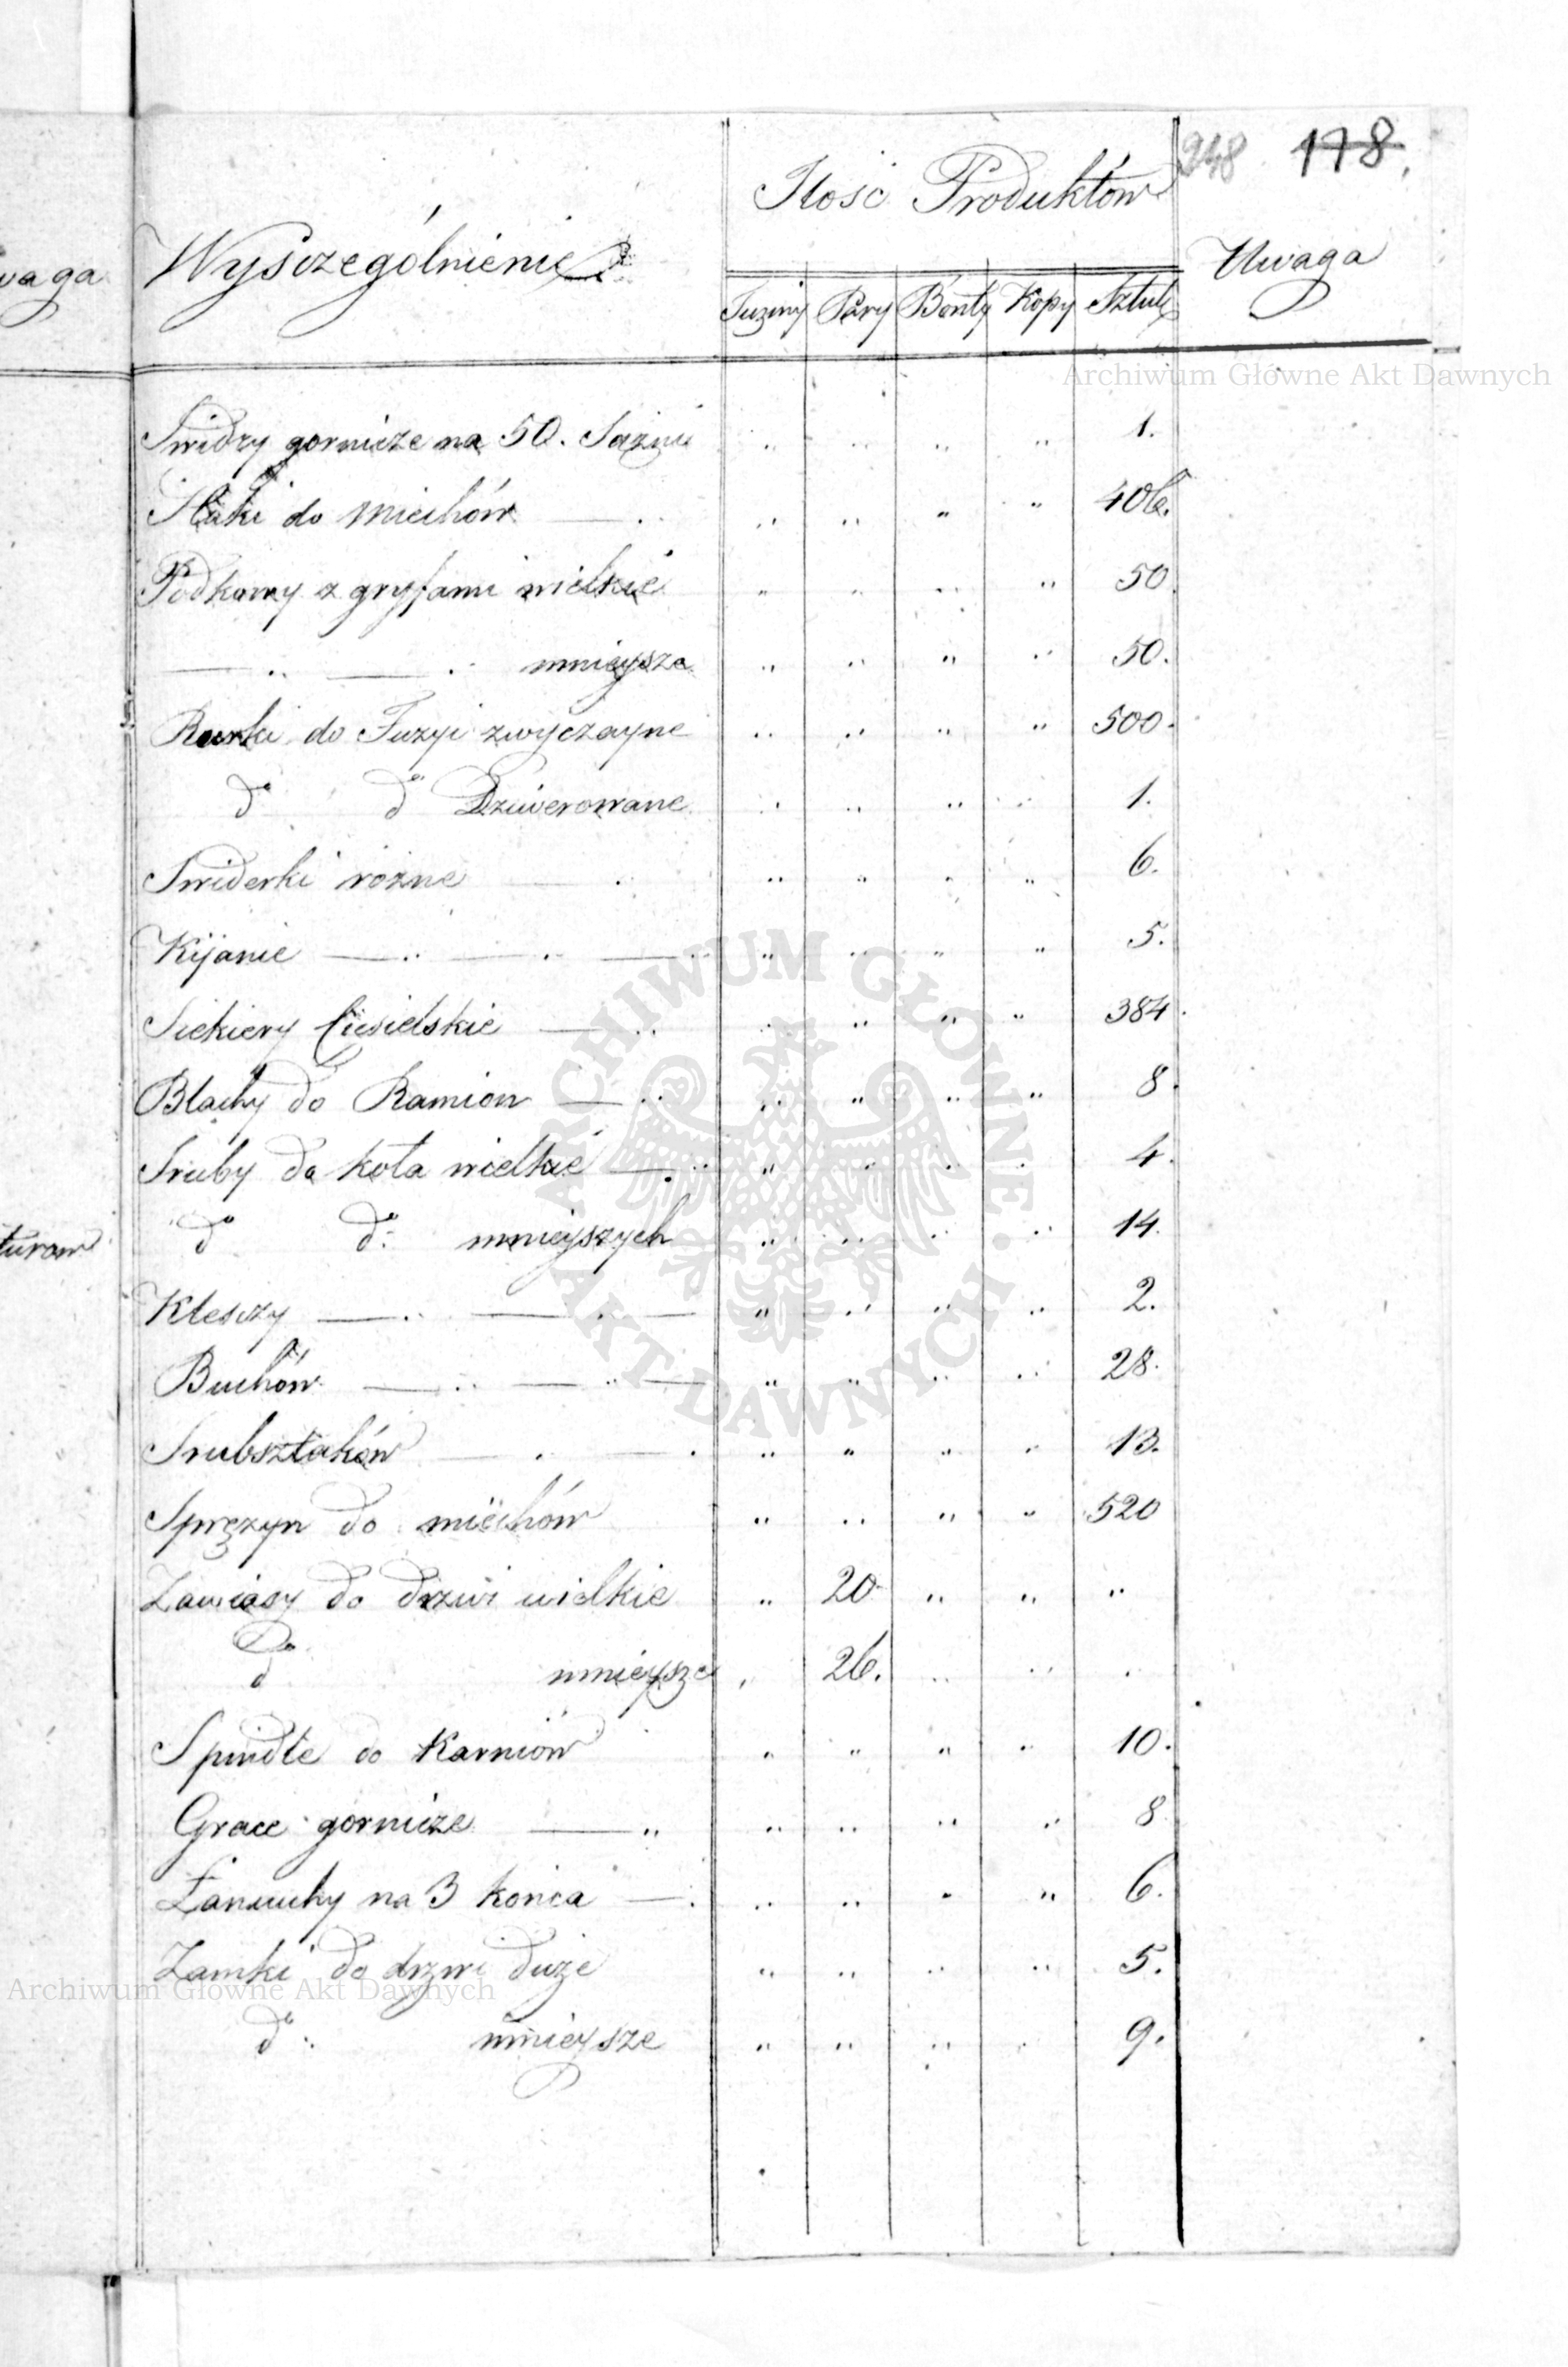 248 178.
Ilość Produktów
Wyszczególnienie
Uwaga
Tuziny Pary Bonty Kopy Sztuk
waga
Archiwum Główne Akt Dawnych
Swidry gornicze na 50. Sążni " " " " 1.
Haki do Miechów — . " " " " 406.
Podkowy z gryfami wielkie " " " " 50
— " — " mnieysza " " " " 50.
Rurki do Fuzyi zwyczayne " " " " 500.
do do Dziwerowane " " " " 1.
Swiderki rożne — . " " " " 6.
Kijanie — " — " — " " " " 5.
Siekiery Ciesielskie — " " " " " 384.
Blachy do Ramion — " " " " " 8.
Sruby do koła wielkie — " " " " " 4.
do do: mnieyszych " " " " 14.
turow
Kleszy — " — " — " " " " 2.
Buchów — " — " — " " " " 28.
Srubsztaków — . — . " " " " 13.
Spręzyn do miechów " " " " 520
Zawiasy do drzwi wielkie " 20 " " "
do mnieysze " 26. " " "
Spindle do Karniów " " " " 10.
Grace gornicze — " " " " " 8
Łancuchy na 3 konia — . " " " " 6.
Zamki do drzwi duże " " " " 5.
Archiwum Główne Akt Dawnych
do: mnieysze " " " " 9.
ARCHIWUM GŁÓWNE • AKT DAWNYCH •